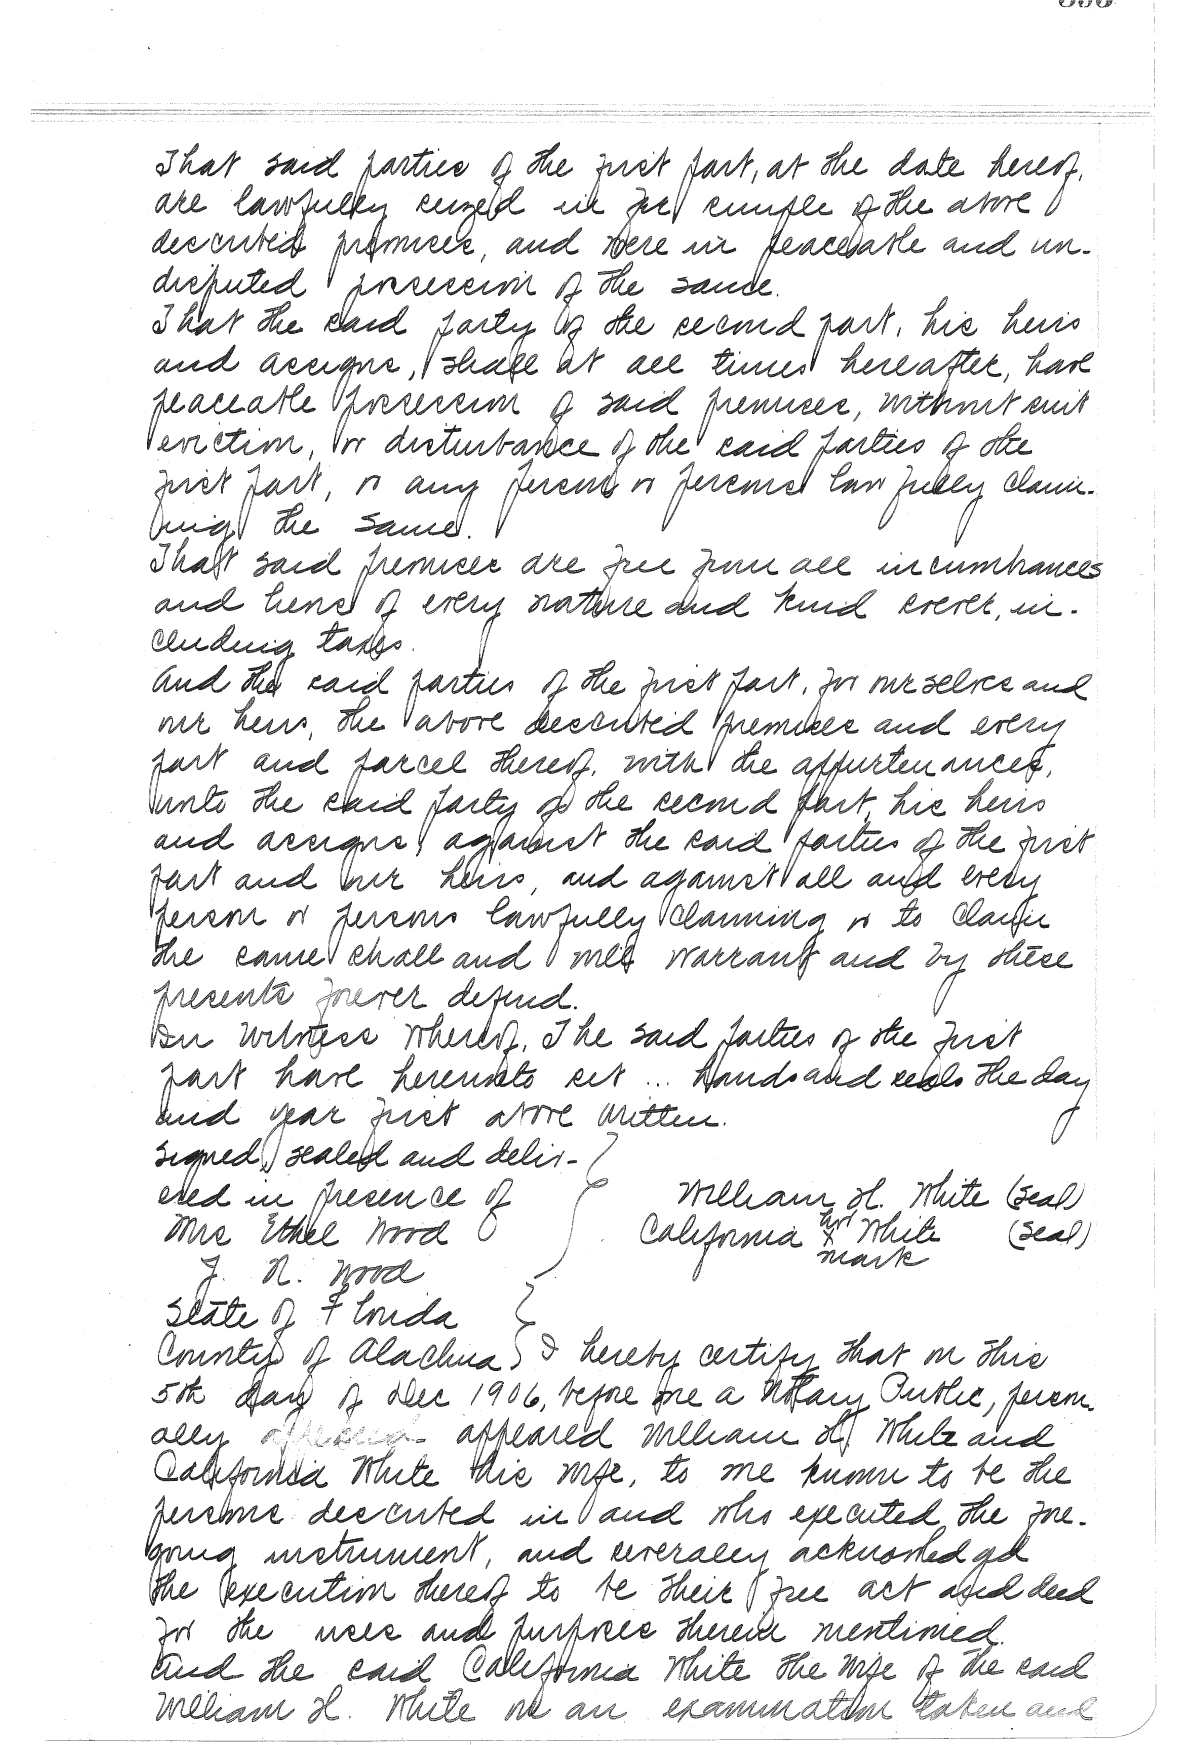 That said parties of the first part, at the date hereof,
are lawfully seized in fee simple of the above
described premises, and were in peaceable and un-
disputed possession of the same.
That the said party of the second part, his heirs
and assigns, shall at all times hereafter, have
peaceable possession of said premises, without suit
eviction, or disturbance of the said parties of the
first part, or any person or persons lawfully claim-
ing the same.
That said premises are free from all incumbrances
and liens of every nature and kind soever, in-
cluding taxes.
And the said parties of the first part, for ourselves and
our heirs, the above described premises and every
part and parcel thereof, with the appurtenances,
unto the said party of the second part, his heirs
and assigns, against the said parties of the first
part and our heirs, and against all and every
person or persons lawfully claiming or to claim
the same shall and will warrant and by these
presents forever defend.
In Witness Whereof, The said parties of the first
part have hereunto set ... hands and seals the day
and year first above written.
Signed, sealed and deliv-
ered in presence of William H. White (Seal)
Mrs Ethel Wood California her x White (Seal)
mark
J. R. Wood
State of Florida
County of Alachua } I hereby certify that on this
5th day of Dec 1906, before me a Notary Public, person-
ally appeared William H. White and
California White his wife, to me known to be the
persons described in and who executed the fore-
going instrument, and severally acknowledgd
the execution thereof to be their free act and deed
for the uses and purposes therein mentioned.
And the said California White the wife of the said
William H. White on an examination taken and